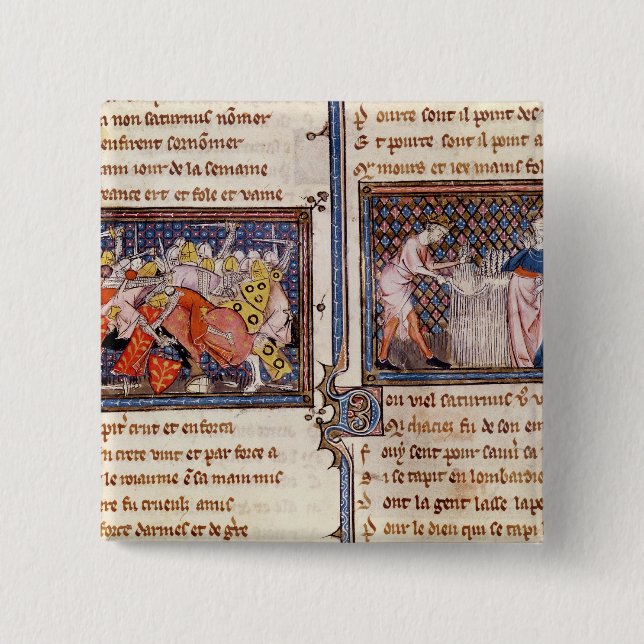 a non saturnus nõmer
enfirent sornõmer
ann iour de la semaine
eance ert et fole et vaine
pit crut et en forca
n crete vint et par force a
le roiaume ẽ sa main mis
re fu crueulz amis
force darmes et de gẽre
P ourte sont il point des
E t pourte sont il point a
mours et iex mains fol
B on viel saturnus
Q chacies fu de son em
F ouy sent pour sauũ sa
I l se tapit en lombardie
D ont la gent lasse lape
P our le dieu qui se tapi